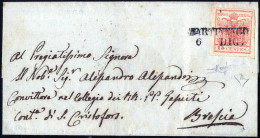 MARTINENGO
6 DIC.
Al Pregiatissimo Signore
Il Nob. Sig.r Alessandro Alessandri
Convittore nel Collegio dei RR. PP. Gesuiti
Cont.a di S. Cristoforo.
Brescia